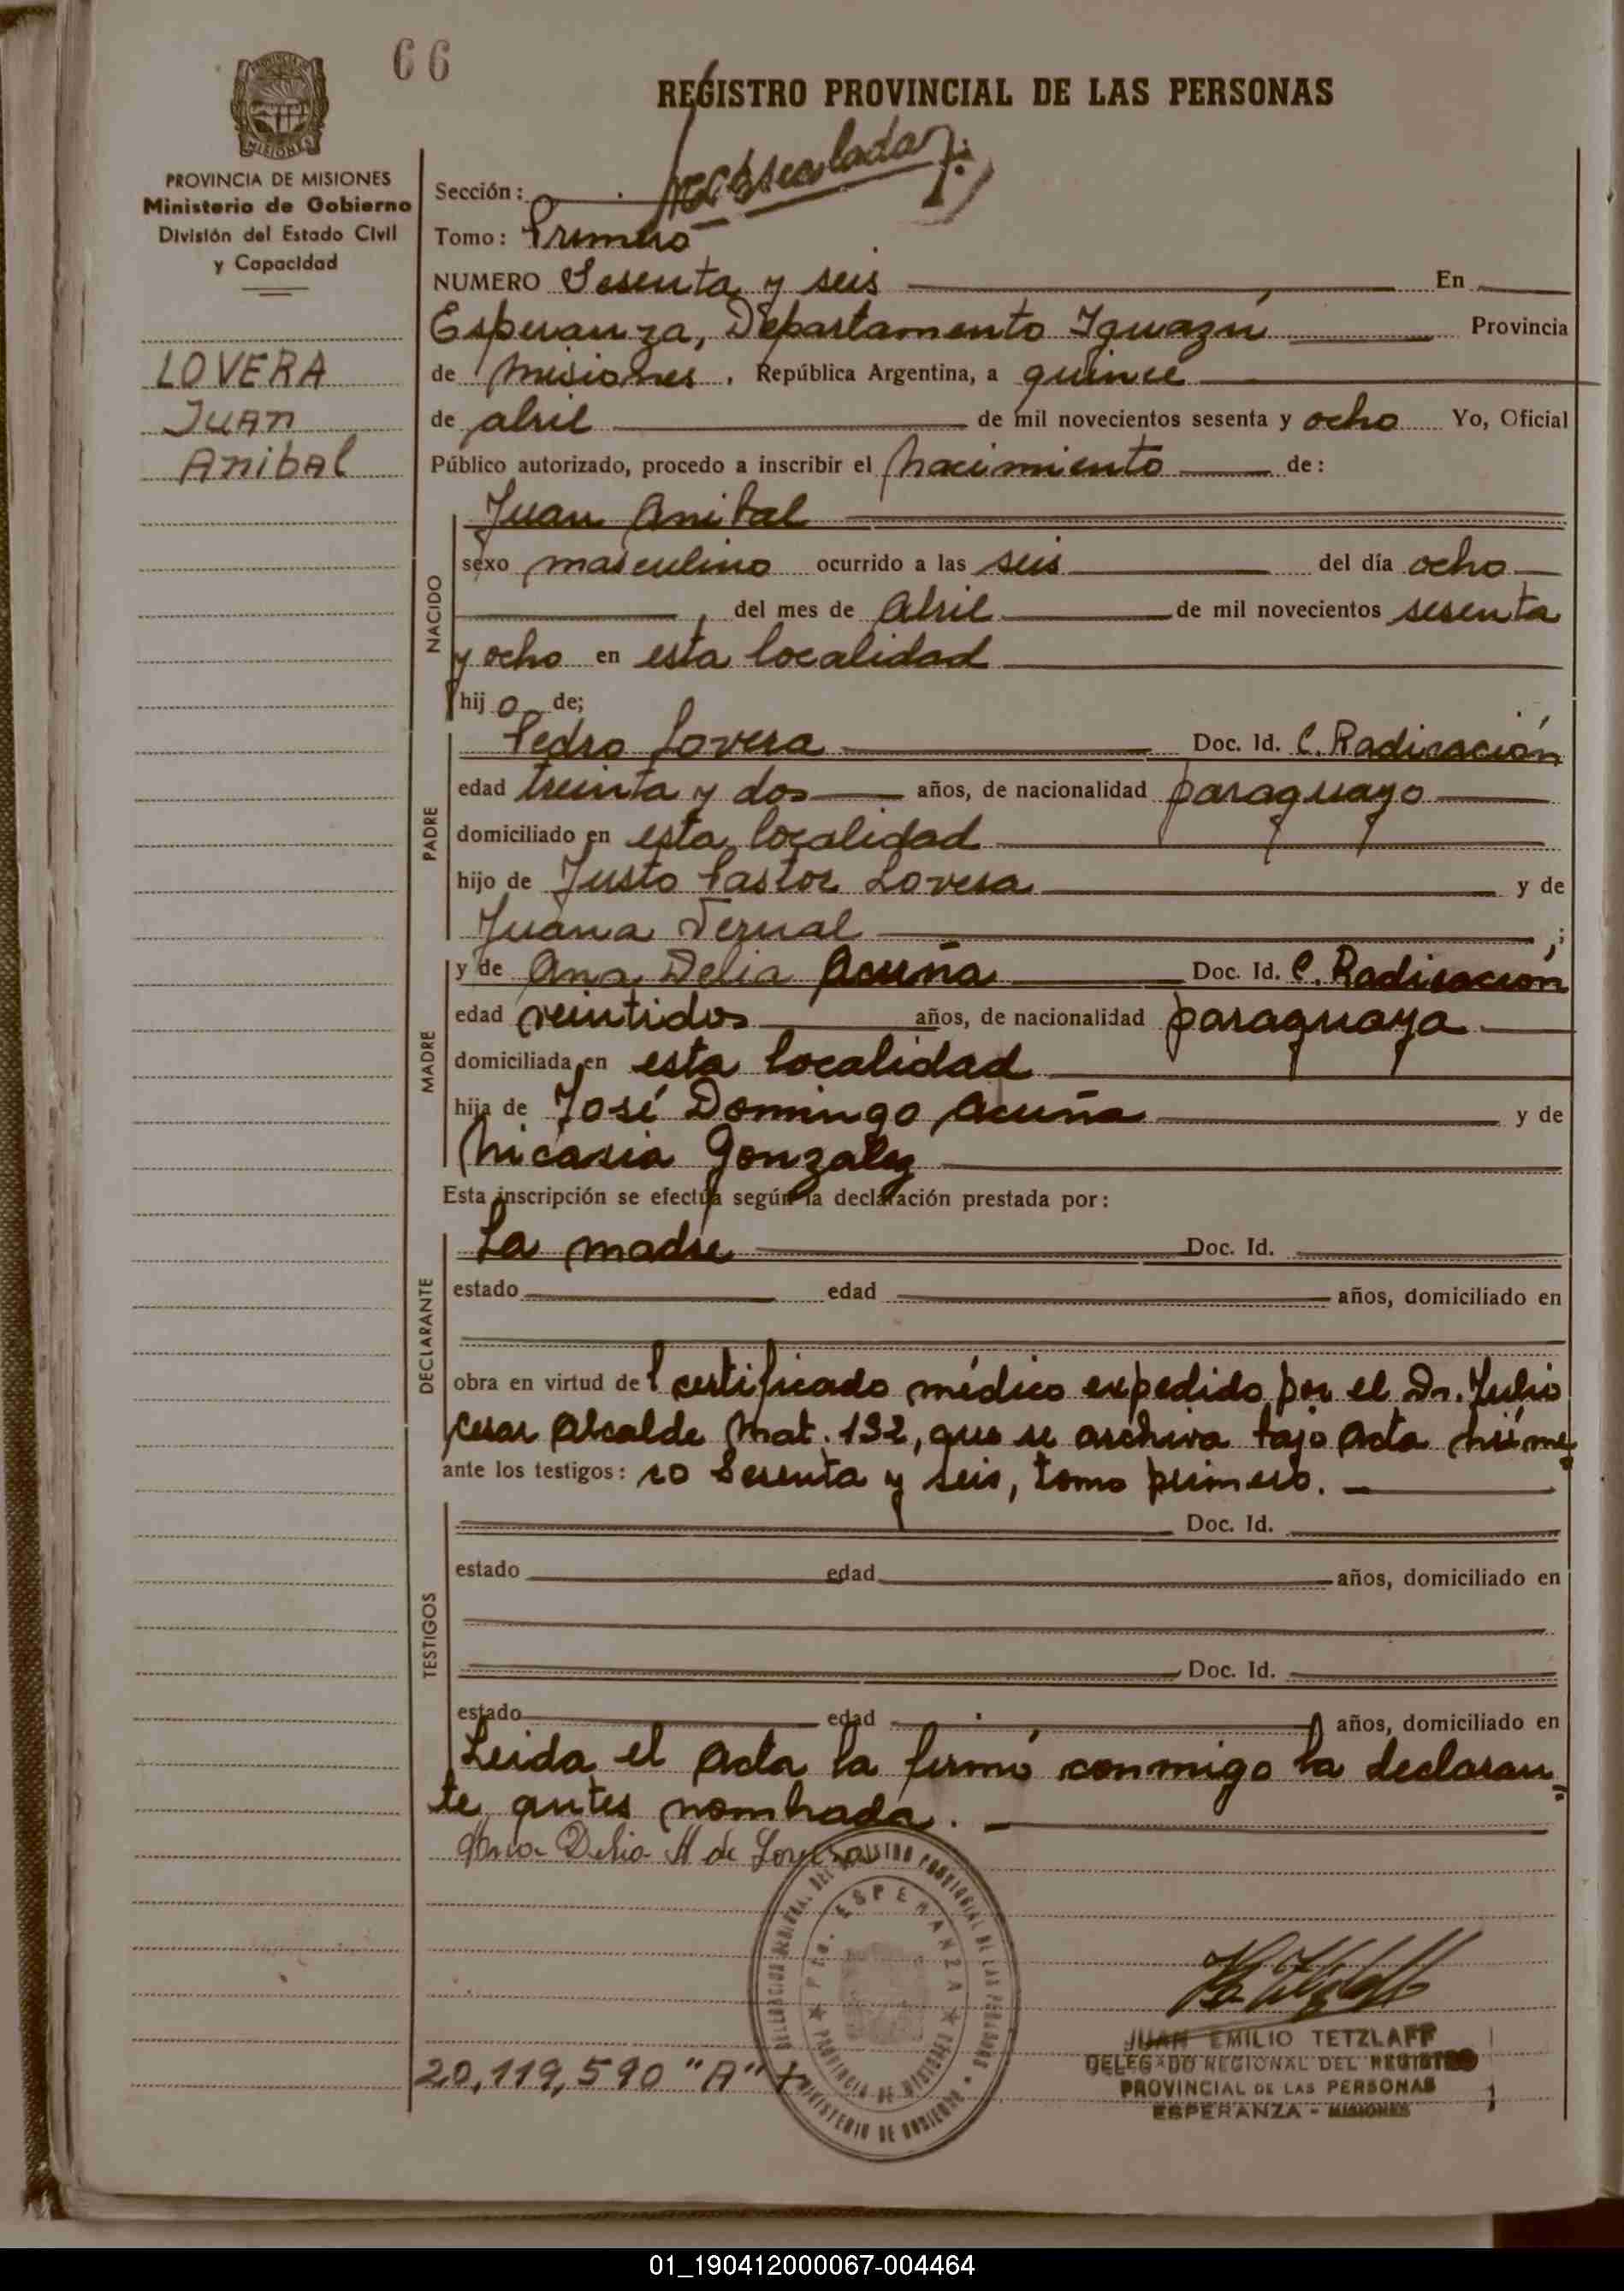 66
REGISTRO PROVINCIAL DE LAS PERSONAS
MISIONES
PROVINCIA DE MISIONES
Ministerio de Gobierno
División del Estado Civil
y Capacidad
LOVERA
Juan
Anibal
Sección:
Tomo: Primero
NUMERO Sesenta y seis En
Esperanza, Departamento Iguazú Provincia
de Misiones, República Argentina, a quince
de abril de mil novecientos sesenta y ocho Yo, Oficial
Público autorizado, procedo a inscribir el nacimiento de:
NACIDO
Juan Anibal
sexo masculino ocurrido a las seis del día ocho
, del mes de Abril de mil novecientos sesenta
y ocho en esta localidad
hijo de;
PADRE
Pedro Lovera Doc. Id. C. Radicación
edad treinta y dos años, de nacionalidad paraguayo
domiciliado en esta localidad
hijo de Justo Pastor Lovera y de
Juana ;
MADRE
y de Ana Delia Acuña Doc. Id. C. Radicación
edad veintidos años, de nacionalidad paraguaya
domiciliada en esta localidad
hija de José Domingo Acuña y de
Nicasia Gonzalez
Esta inscripción se efectúa según la declaración prestada por:
DECLARANTE
La madre Doc. Id.
estado edad años, domiciliado en
obra en virtud del certificado médico expedido por el Dr. Julio
Cesar Alcalde Mat. 132, que se archiva bajo Acta núme=
ante los testigos: ro Sesenta y seis, tomo primero.
TESTIGOS
Doc. Id.
estado edad años, domiciliado en
Doc. Id.
estado edad años, domiciliado en
Leida el Acta la firmó conmigo la declaran=
te antes nombrada.
Ana Delia A de Lovera
ESPERANZA
PROVINCIA DE MISIONES
MINISTERIO DE GOBIERNO
JUAN EMILIO TETZLAFF
DELEGADO REGIONAL DEL REGISTRO
PROVINCIAL DE LAS PERSONAS
ESPERANZA - MISIONES
20,119,590 "A"
01_190412000067-004464